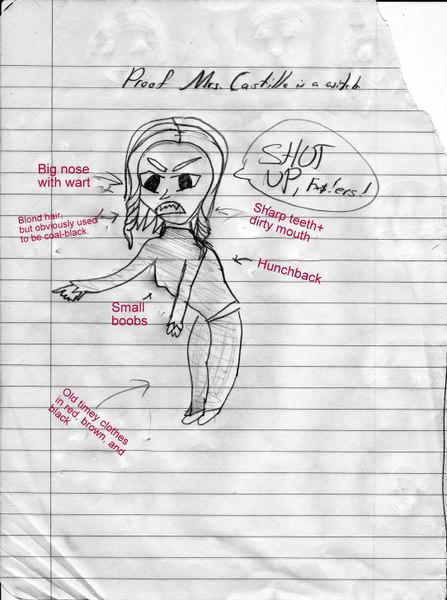 Proof Mrs. Castillo is a witch
SHUT
UP, F*$!ers!
Big nose
with wart
Blond hair,
but obviously used
to be coal-black.
Sharp teeth+
dirty mouth
Hunchback
Small
boobs
Old timey clothes
in red, brown, and
black